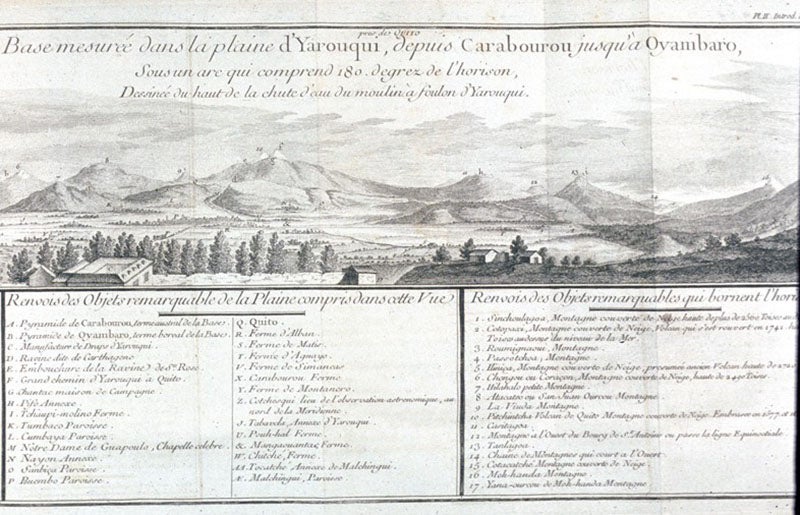 Pl. II. Introd.
près de QUITO
Base mesurée dans la plaine d'Yarouqui, depuis Carabourou jusqu'à Oyambaro,
Sous un arc qui comprend 180. degrez de l'horison,
Dessinée du haut de la chute d'eau du moulin à foulon d'Yarouqui.
Renvois des Objets remarquable de la Plaine compris dans cette Vue
A. Pyramide de Carabourou, terme austral de la Base.
B. Pyramide de Oyambaro, terme boreal de la Base.
C. Manufacture de Draps d'Yarouqui.
D. Ravine dite de Carthagene
E. Embouchure de la Ravine de Ste. Rose.
F. Grand chemin d'Yarouqui à Quito.
G. Chantac maison de Campagne
H. Pifo Annexe.
I. Tchaupi-molino Ferme.
K. Tumbaco Paroisse.
L. Cumbaya Paroisse.
M. Nôtre Dame de Guapoulo, Chapelle celebre.
N. Nayon Annexe.
O. Sanbiça Paroisse.
P. Puembo Paroisse.
Q. Quito.
R. Ferme d'Alban.
S. Ferme de Matis.
T. Ferme d'Aguayo.
V. Ferme de Simancas
X. Carabourou Ferme.
Y. Ferme de Montanero.
Z. Cotchesqui lieu de l'observation astronomique, au
nord de la Meridienne.
J. Tababela, Annexe d'Yarouqui.
U. Poush-hal Ferme.
&. Mangaouantac Ferme.
W. Chitche, Ferme.
AA. Tocatche Annexe de Malchingui.
Æ. Malchingui, Paroisse.
Renvois des Objets remarquables qui bornent l'hori
1. Sinchoulagoa, Montagne couverte de Neige haute de plus de 2500 Toises au
2. Cotopaxi, Montagne couverte de Neige, Volcan qui s'est rouvert en 1742. h
Toises audessus du niveau de la Mer.
3. Roumignaoui, Montagne.
4. Passotchoa, Montagne
5. Ilinica, Montagne couverte de Neige, presumé ancien Volcan haute de
6. Chongon ou Coraçon, Montagne couverte de Neige, haute de 2490 Toises
7. petite Montagne
8. Atacatso ou San Juan Ourcou Montagne
9. La Viuda Montagne.
10. Pitchintcha Volcan de Quito Montagne couverte de Neige. Embrasée en 1577. et
11. Casitagoa.
12. Montagne à l'Ouest du Bourg de St. Antoine ou passe la ligne Equinoctiale
13. Tanlagoa.
14. Chaine de Montagnes qui court à l'Ouest.
15. Cotacatché Montagne couverte de Neige.
16. Moh-handa Montagne
17. Yana-ourcou de Moh-handa Montagne